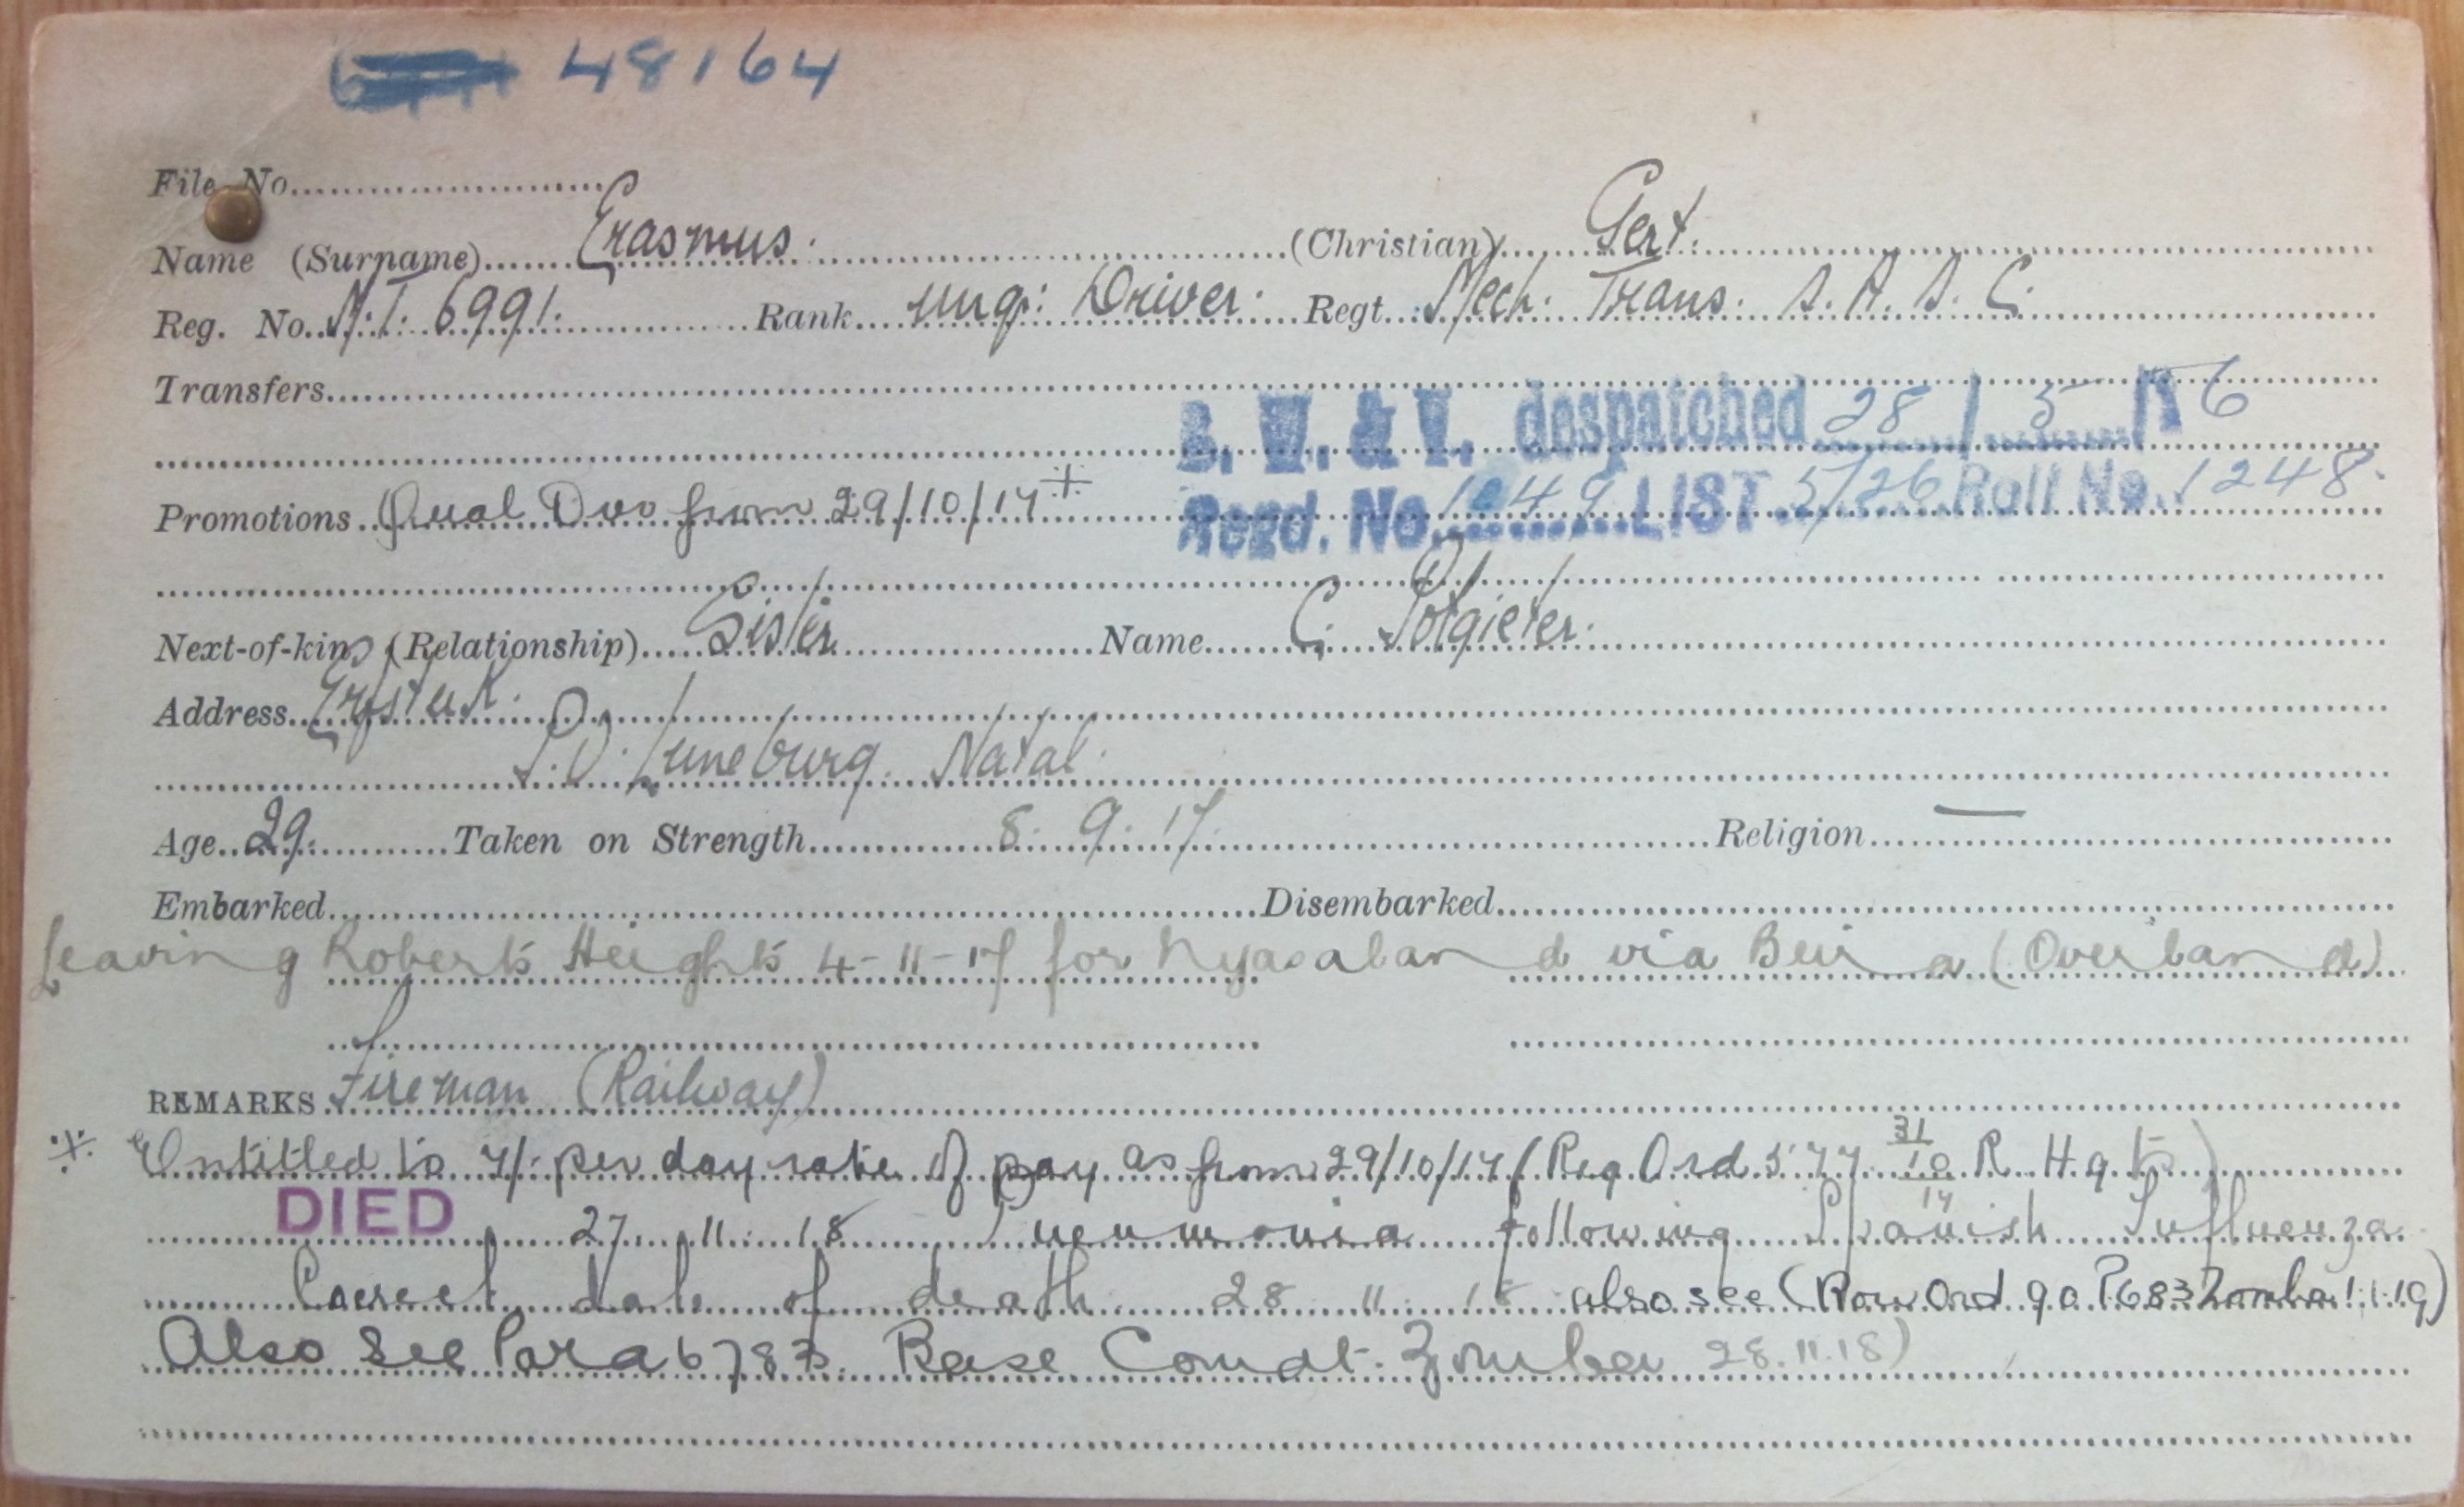 48164
File No.
Name (Surname) Erasmus. (Christian) Gert.
Reg. No. M.T. 6991. Rank Driver. Regt. Mech. Trans. S. A. S. C.
Transfers
B. W. & V. despatched 28/5/26
Promotions Qual Dvr from 29/10/17 Regd. No. 1049 LIST 5/26 Roll No. 1248.
Next-of-kin (Relationship) Sister Name C. Potgieter.
Address
P.O. Luneburg. Natal.
Age 29. Taken on Strength 8. 9. 17. Religion —
Embarked Disembarked
Leaving Roberts Heights 4-11-17 for Nyasaland via Beira (Overland)
REMARKS Fireman (Railway)
Entitled to 7/- per day rate of pay as from 29/10/17 (Reg Ord 577 31/10/17 R. Hgts)
DIED 27. 11. 18 Pneumonia following Spanish Influenza.
Correct date of death 28 11 18 also see (Rou Ord 90 P683 Zomba 1.1.19)
Also see Para 6783. Base Comdt. Zomba 28.11.18)